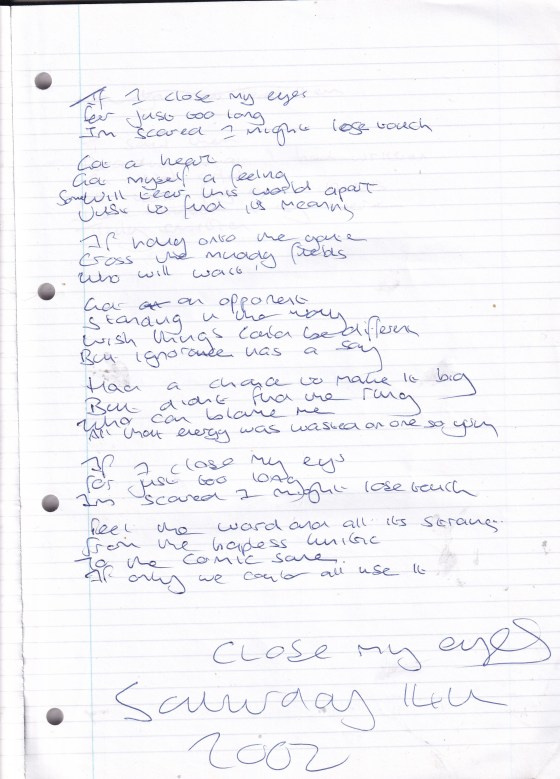 If I close my eyes
for just too long
Im scared I might lose touch
Got a heart
Got myself a feeling
Some Will tear this world apart
Just to find its meaning
If holy onto the game
Cross the muddy fields
Who will wait
Got an opponent
Standing in the way
Wish things could be different
But ignorance has a say
Had a chance to make it big
But didnt find the ring
Who can blame me
All that energy was wasted on one so young
If I close my eyes
for just too long
Im scared I might lose touch
feel the word and all its
from the hapless
To the comic
If only we could all use it
Close my eyes
Saturday 14th
2002